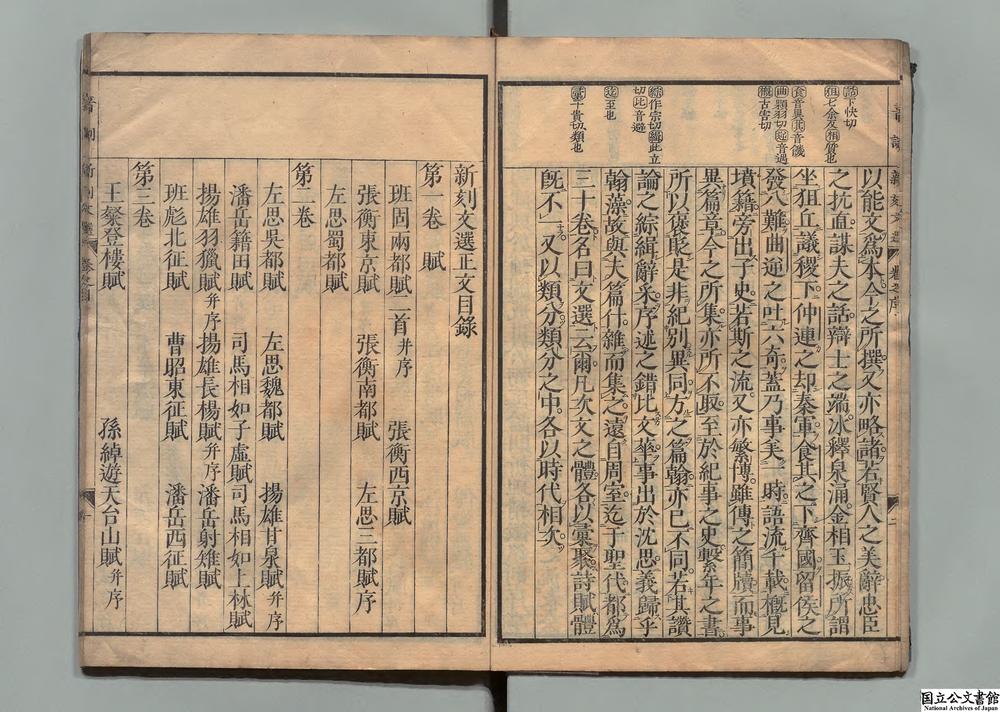 話下快切
狙七余反相質也
食音異其音饑
逆音遇
概古害切
綜作宗切緝此立
切比音避
迄至也
彙于貴切類也
以能文爲本今之所撰又亦略諸若賢人之美辭忠臣
之抗直謀夫之話辯士之端冰釋泉涌金相玉振所謂
坐狙丘議稷下仲連之却秦軍食其之下齊國留侯之
發八難曲逆之吐六奇蓋乃事美一時語流千載概見
墳籍旁出子史若斯之流又亦繁博雖傳之簡牘而事
異篇章今之所集亦所不取至於紀事之史繫年之書
所以褒貶是非紀別異同方之篇翰亦已不同若其讚
論之綜緝辭采序述之錯比文華事出於沈思義歸乎
翰藻故與夫篇什雜而集之遠自周室迄于聖代都爲
三十卷名曰文選云爾凡次文之體各以彙聚詩賦體
旣不一又以類分類分之中各以時代相次
新刻文選正文目錄
第一卷 賦
班固兩都賦二首并序 張衡西京賦
張衡東京賦 張衡南都賦 左思三都賦序
左思蜀都賦
第二卷
左思吳都賦 左思魏都賦 揚雄甘泉賦并序
潘岳籍田賦 司馬相如子虛賦 司馬相如上林賦
揚雄羽獵賦并序 揚雄長楊賦并序 潘岳射雉賦
班彪北征賦 曹昭東征賦 潘岳西征賦
第三卷
王粲登樓賦 孫綽遊天台山賦并序
国立公文書館
National Archives of Japan